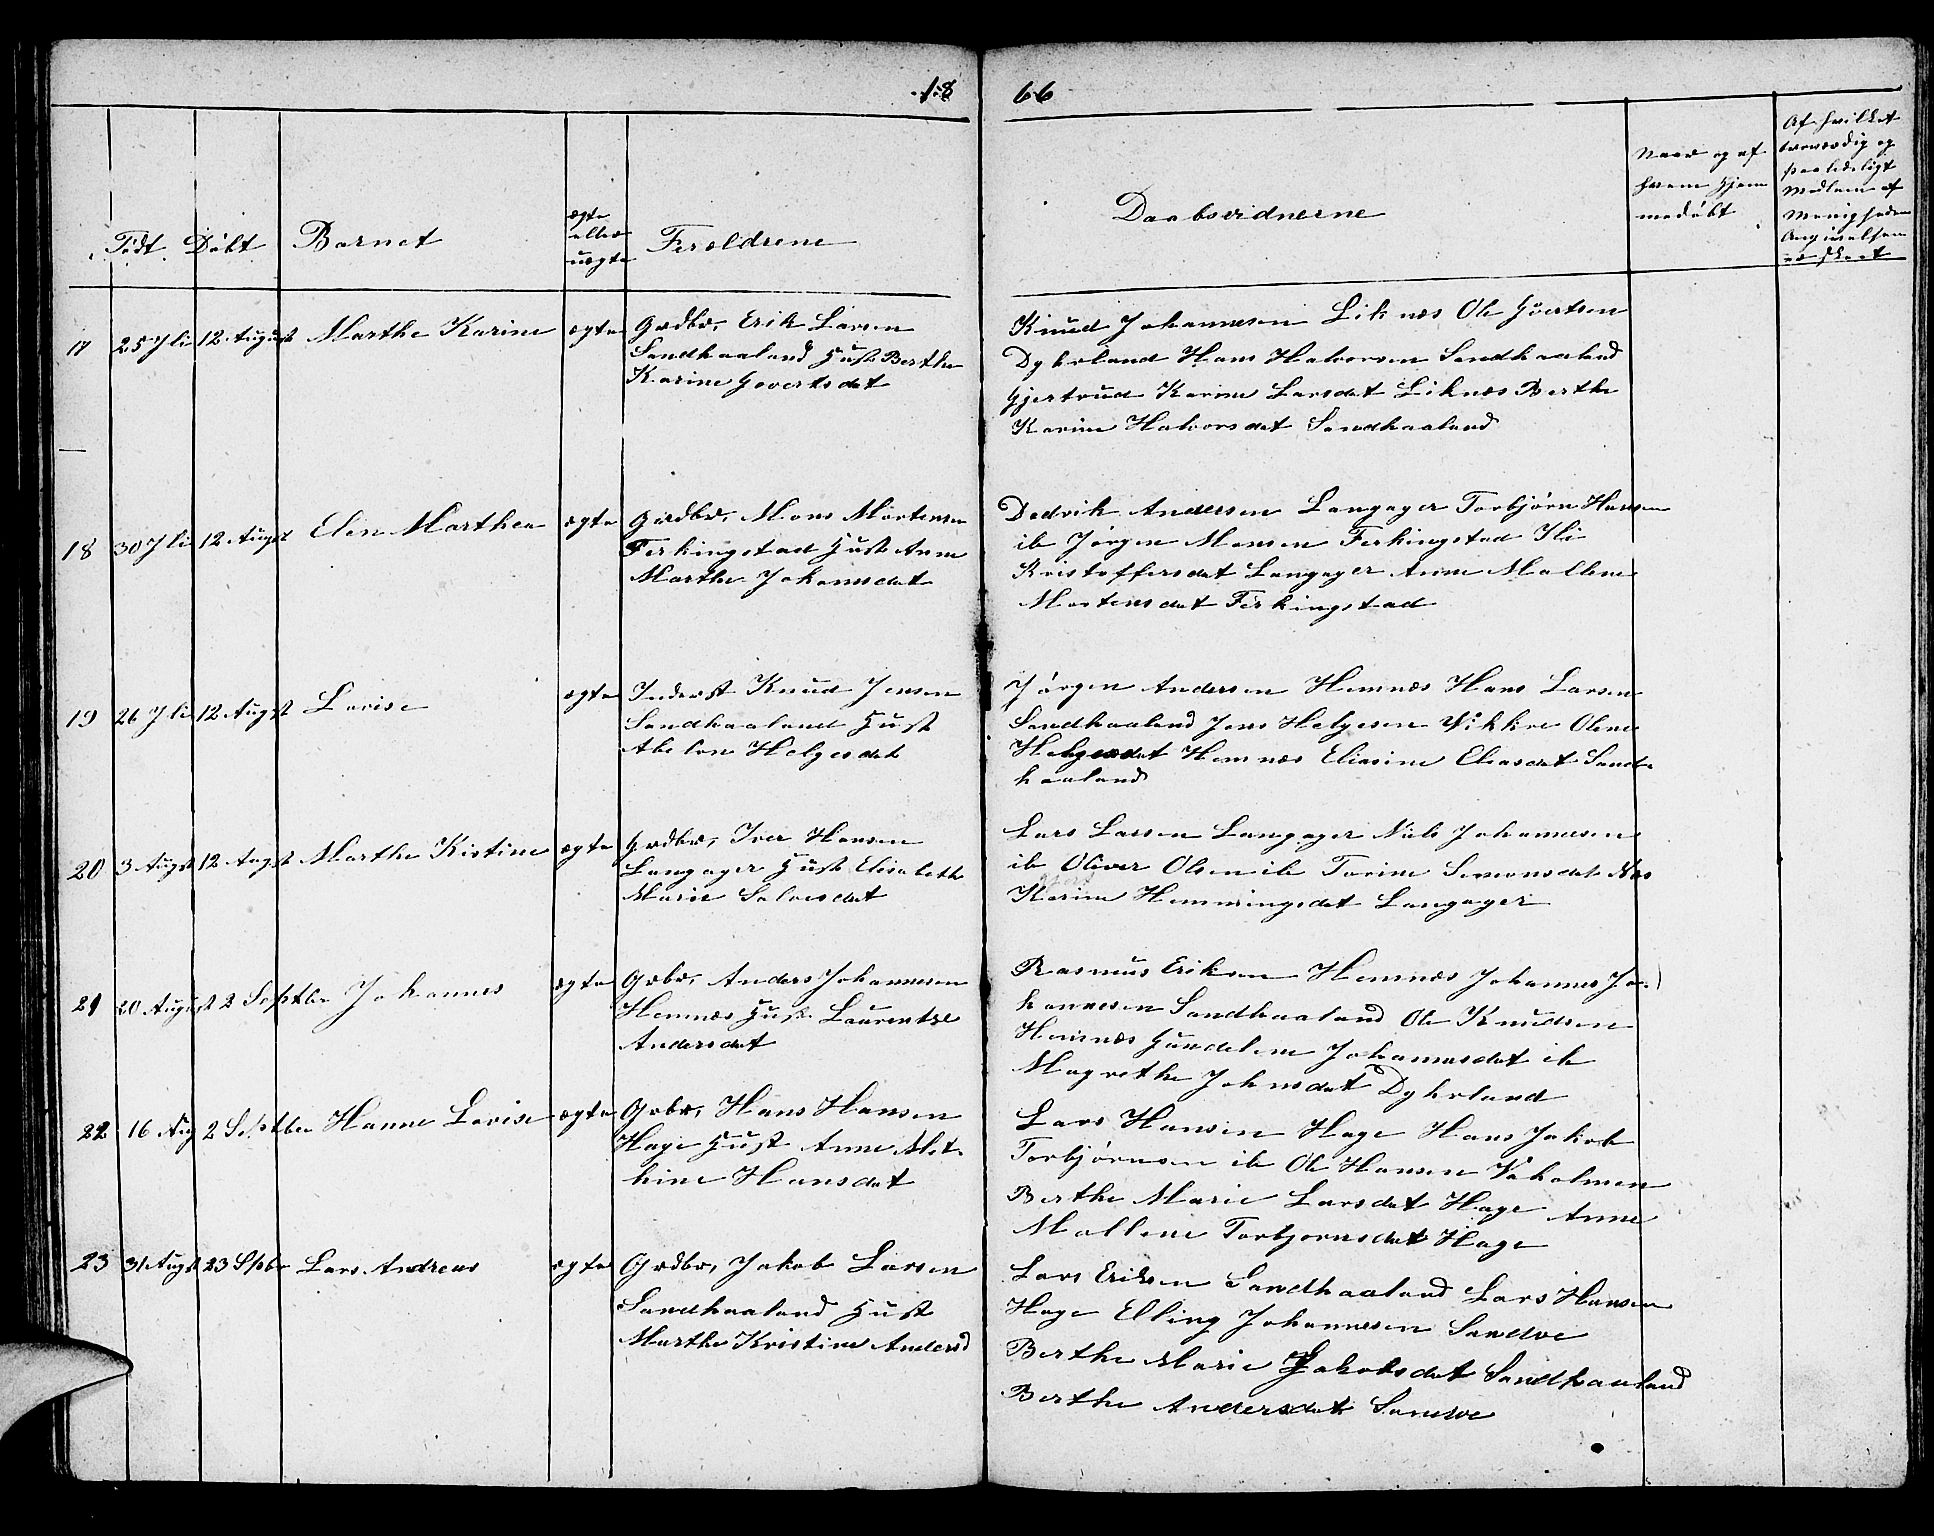 18 66
Født Døbt Barnet ægte eller uægte Foræeldrene Daabsvidnerne
Naar og af hvem hjemmedøbt
Af hvilket troværdig og paalideligt Medlem af Menigheden Angivelsen er skeet
17 25 Jli 12 August Marthe Karine ægte Grdbr, Erik Larsen
Sandhaaland Hust Berthe
Karine Govertsdat
Knud Johannesen Liknes Ole Goertsen
Dyhrland Hans Halvorsen Sandhaaland
Gjertrud Karine Larsdat Liknes Berthe
Karine Halvorsdat Sandhaaland
18 30 Jli 12 Augst Elen Marthea ægte Grdbr, Mons Mortensen
Ferkingstad Hust Anne
Marthe Johannsdat
Dedrik Andersen Langager Torbjørn Hansen
ib Jørgen Monsen Ferkingstad Ili
Kristoffersdat Langager Anne Mallene
Mortensdat Ferkingstad
19 26 Jli 12 Augst Lovise ægte Inderst Knud Jensen
Sandhaaland Hust
Abelone Helgesdat
Jørgen Andersen Hemnes Hans Larsen
Sandhaaland Jens Helgesen Vikkre Oline
Helgesdat Hemnes Eliasine Eliasdat Sand-
haaland
20 3 Augst 12 Augst Marthe Kistine ægte Grdbr, Iver Hansen
Langager Hust Elisabeth
Marie Salvesdat
Lars Larsen Langager Niels Johannesen
ib Oliver Olsen ib Torine Simonsdat Nes
Karine Hemmingsdat Langager
21 20 August 2 Septbr Johannes ægte Grbr, Anders Johannesen
Hemnes Hust Laurentze
Andersdat
Rasmus Eriksen Hemnes Johannes Jo-
hannesen Sandhaaland Ole Knudsen
Hemnes Gundeline Johannesdat ib
Magrethe Johnsdat Dyhrland
22 16 Aug 2 Septbr Hanne Lovise ægte Grbr, Hans Hansen
Hage Hust Anne Mat-
hine Hansdat
Lars Hansen Hage Hans Jakob
Torbjørnsen ib Ole Hansen Vaholmen
Berthe Marie Larsdat Hage Anne
Mallene Torbjornsdat Hage
23 31 Augst 23 Spbr Lars Andreas ægte Grdbr, Jakob Larsen
Sandhaaland Hust
Marthe Kristine Andersd
Lars Eriksen Sandhaaland Lars Hansen
Hage Elling Johannesen Sandve
Berthe Marie Jakobsdat Sandhaaland
Berthe Andersdat Sandve